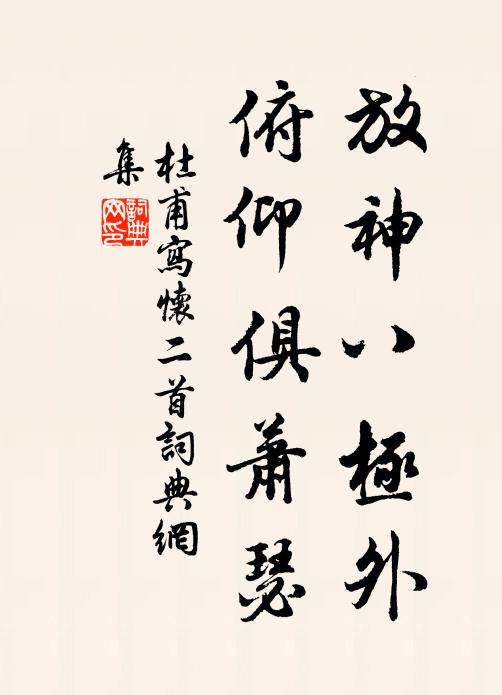 放神八極外
俯仰俱蕭瑟
杜甫寫懷二首詞典網
集
詞典
网印